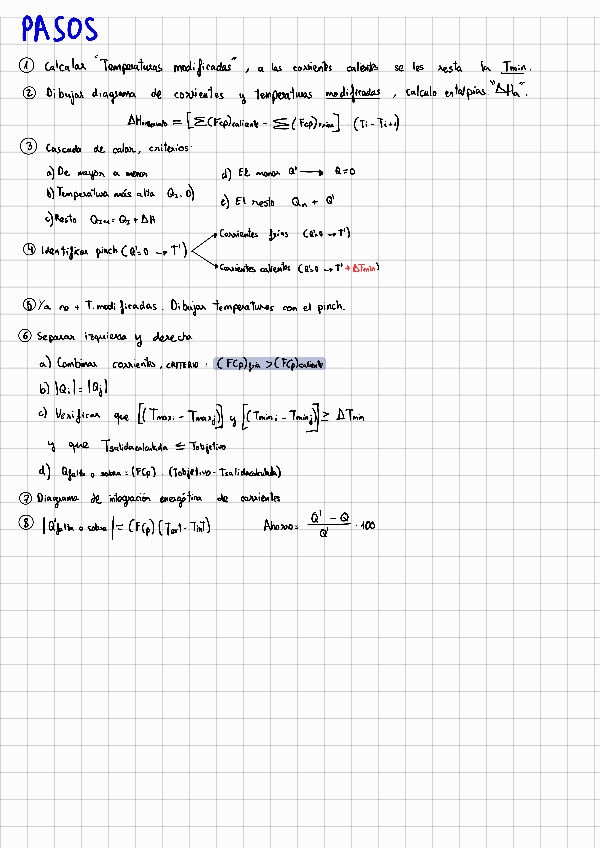 PASOS
① Calcular "Temperaturas modificadas", a las corrientes calientes se les resta la Tmin.
② Dibujar diagrama de corrientes y temperaturas modificadas, calculo entalpías "ΔHn".
ΔHincremento = [Σ(FCp)caliente - Σ(FCp)fría] (Ti - Ti+1)
③ Cascada de calor, criterios:
a) De mayor a menor
d) El menor Q' → Q=0
b) Temperatura más alta Q1=0)
e) El resto Qn + Q'
c) Resto QI+1 = QI + ΔH
④ Identificar pinch (Q'=0 → T')
Corrientes frías (Q'=0 → T')
Corrientes calientes (Q'=0 → T' + ΔTmin)
⑤ Ya no + T.modificadas. Dibujar temperatures con el pinch.
⑥ Separar izquierda y derecha
a) Combinar corrientes, CRITERIO: (FCp)fría > (FCp)caliente
b) |Qi| = |Qj|
c) Verificar que [(Tmaxi - Tmaxj)] y [(Tmini - Tminj)] ≥ ΔTmin
y que Tsalidacalculada ≤ Tobjetivo
d) Qfalta o sobra = (FCp) · (Tobjetivo - Tsalidacalculada)
⑦ Diagrama de integración energética de corrientes
⑧ |Q'falta o sobra| = (FCp) (Text - Tint)
Ahorro = Q' - Q / Q' · 100